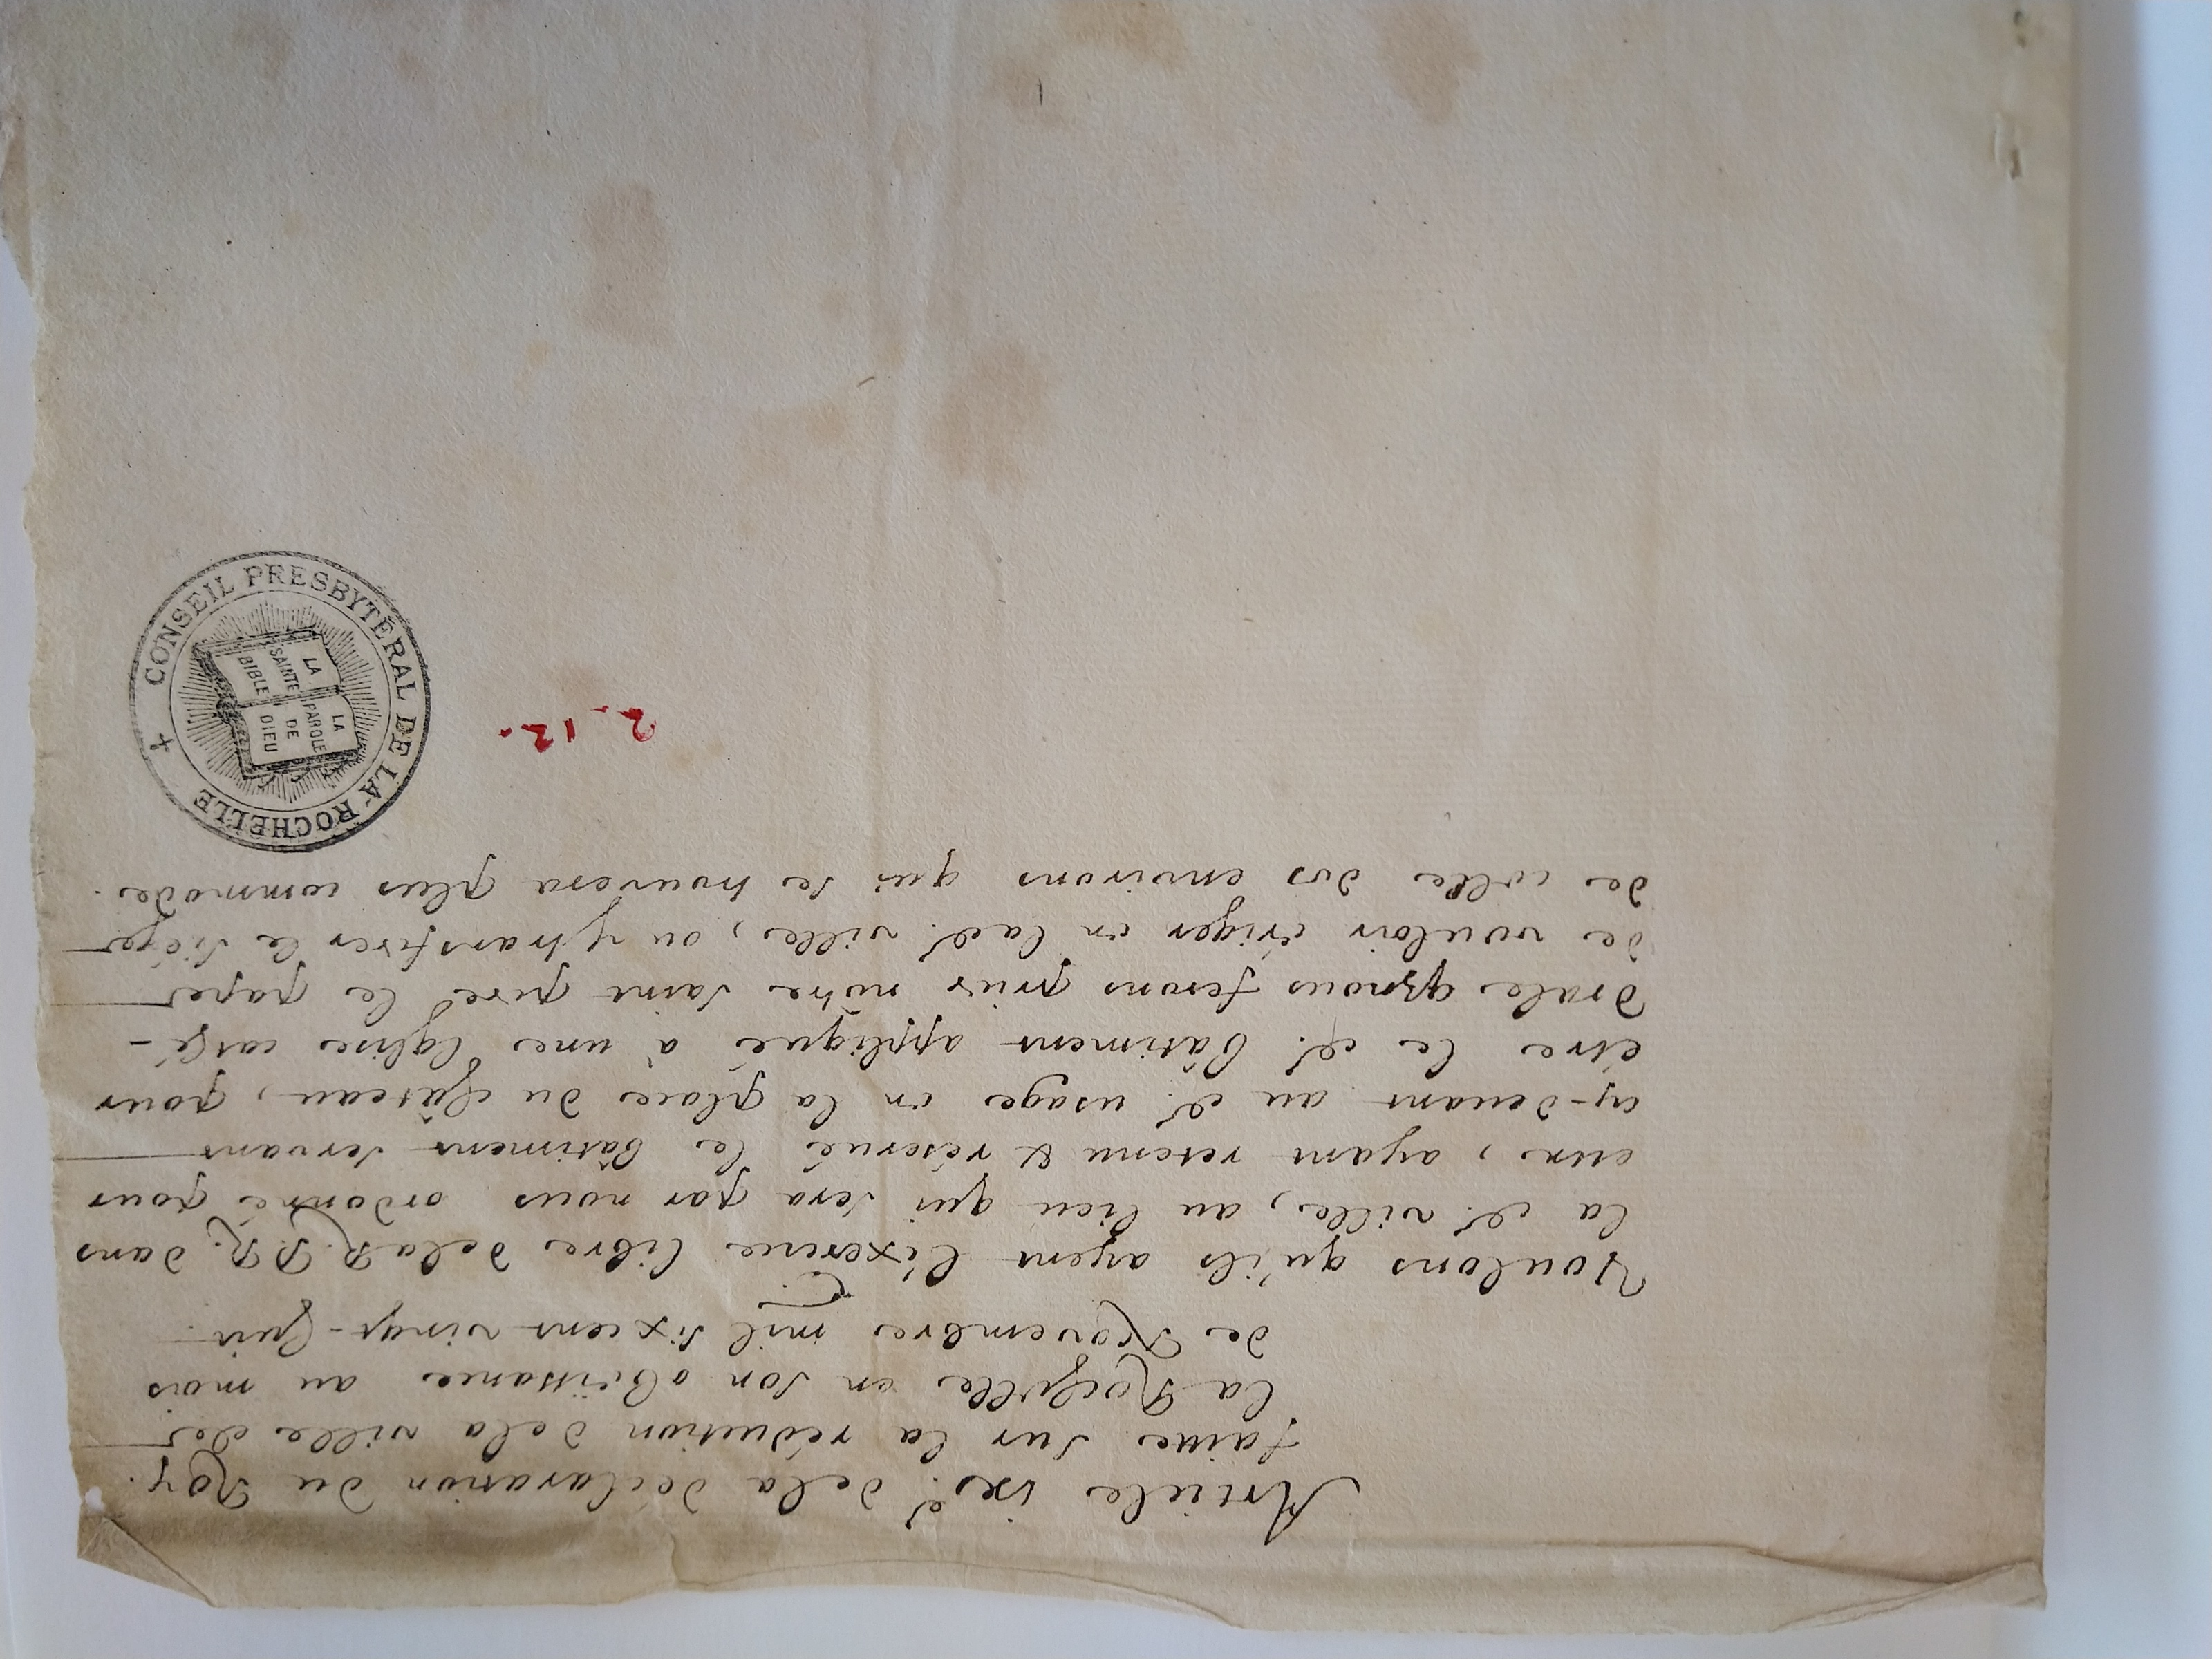 Article ixe. dela déclaration du Roy.
faitte sur la réduction dela ville de
la Rochelle en son obeïssance au mois
de Novembre mil six cent vingt-huit.
Voulons qu'ils ayent l'exercice libre dela R. P. R. dans
la dt. ville, au lieu qui sera par nous ordonné pour
eux, ayant retenu & réservé le bâtiment servant
cy-devant au dt. usage en la place du château, pour
être le dt. bâtiment appliqué à une Eglise cathé-
drale, nous ferons prier nôtre saint pere le pape
de vouloir ériger en ladt. ville, ou y transferer le siége
de celle des environs qui se trouvera plus commode.
2. 12.
CONSEIL PRESBYTÉRAL DE LA ROCHELLE
LA SAINTE BIBLE
LA PAROLE DE DIEU